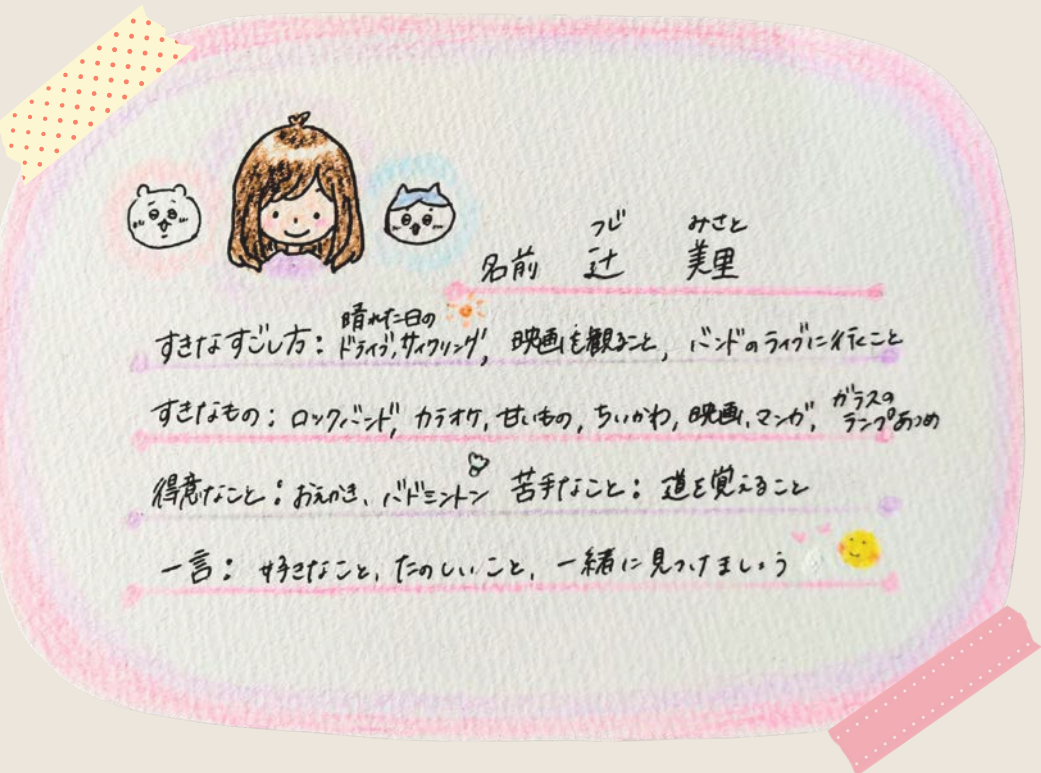 つじ みさと
名前 辻 美里
すきなすごし方：晴れた日のドライブ,サイクリング, 映画を観ること, バンドのライブに行くこと
すきなもの：ロックバンド, カラオケ, 甘いもの, ちいかわ, 映画, マンガ, ガラスのランプあつめ
得意なこと：おえかき、バドミントン 苦手なこと：道を覚えること
一言：好きなこと, たのしいこと, 一緒に見つけましょう